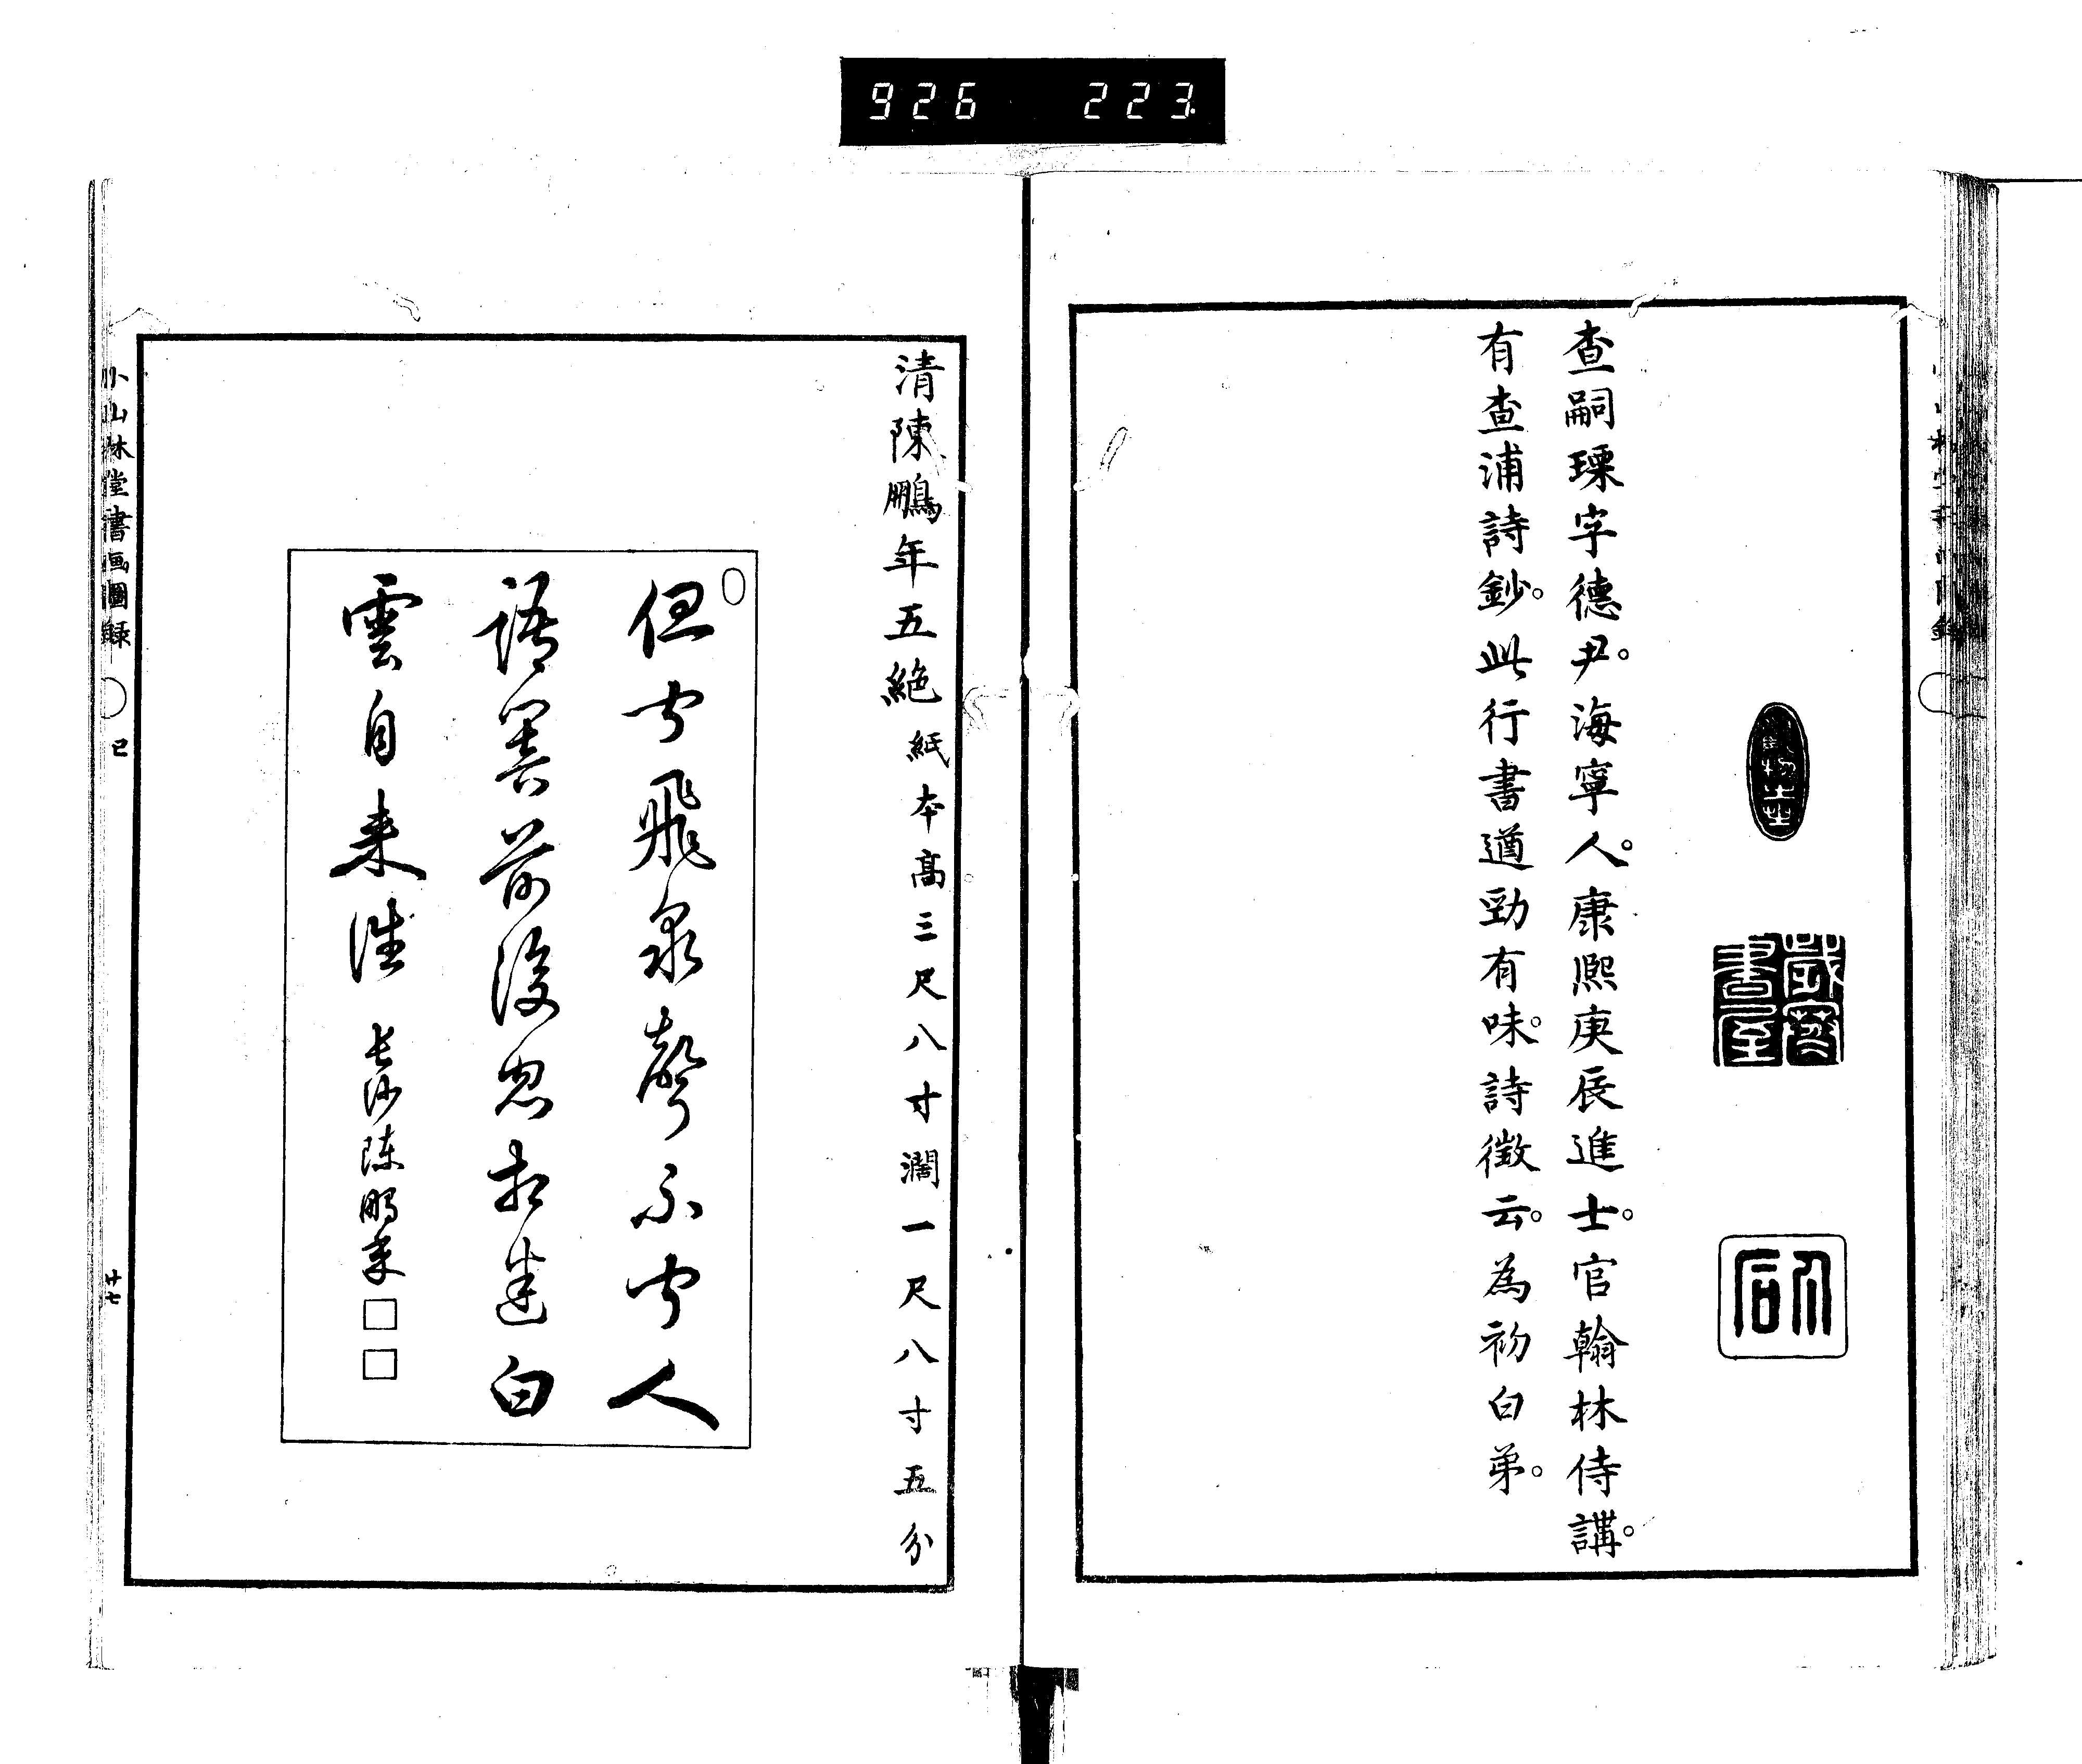 926 223
查嗣瑮字德尹。海寧人。康熙庚辰進士。官翰林侍講。
有查浦詩鈔。此行書遒勁有味。詩徵云。為初白弟。
清陳鵬年五絶 紙本高三尺八寸濶一尺八寸五分
但聞飛泉聲不聞人
語答前後忽相迷白
雲自来往 長沙陳鵬年
小山林堂書画圖録 已 廿七